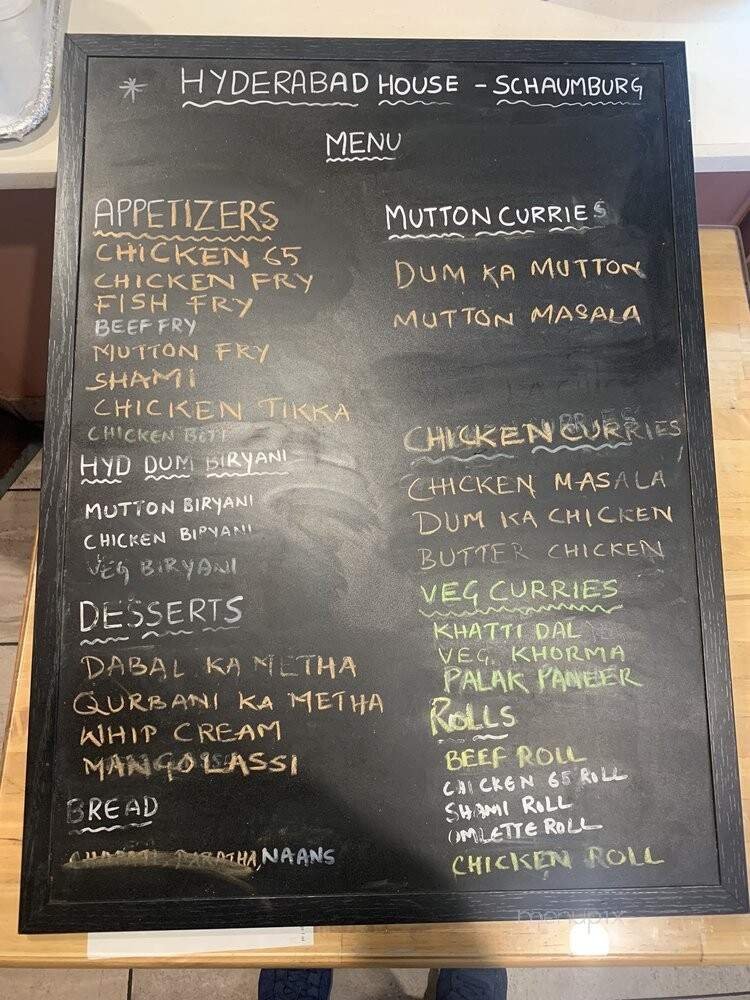 * HYDERABAD HOUSE - SCHAUMBURG
MENU
APPETIZERS
CHICKEN 65
CHICKEN FRY
FISH FRY
BEEF FRY
MUTTON FRY
SHAMI
CHICKEN TIKKA
CHICKEN BOTI
HYD DUM BIRYANI
MUTTON BIRYANI
CHICKEN BIRYANI
VEG BIRYANI
DESSERTS
DABAL KA METHA
QURBANI KA METHA
WHIP CREAM
MANGO LASSI
BREAD
CHAPATI PARATHA, NAANS
MUTTON CURRIES
DUM KA MUTTON
MUTTON MASALA
CHICKEN CURRIES
CHICKEN MASALA
DUM KA CHICKEN
BUTTER CHICKEN
VEG CURRIES
KHATTI DAL
VEG. KHORMA
PALAK PANEER
ROLLS
BEEF ROLL
CHICKEN 65 ROLL
SHAMI ROLL
OMLETTE ROLL
CHICKEN ROLL
menupix